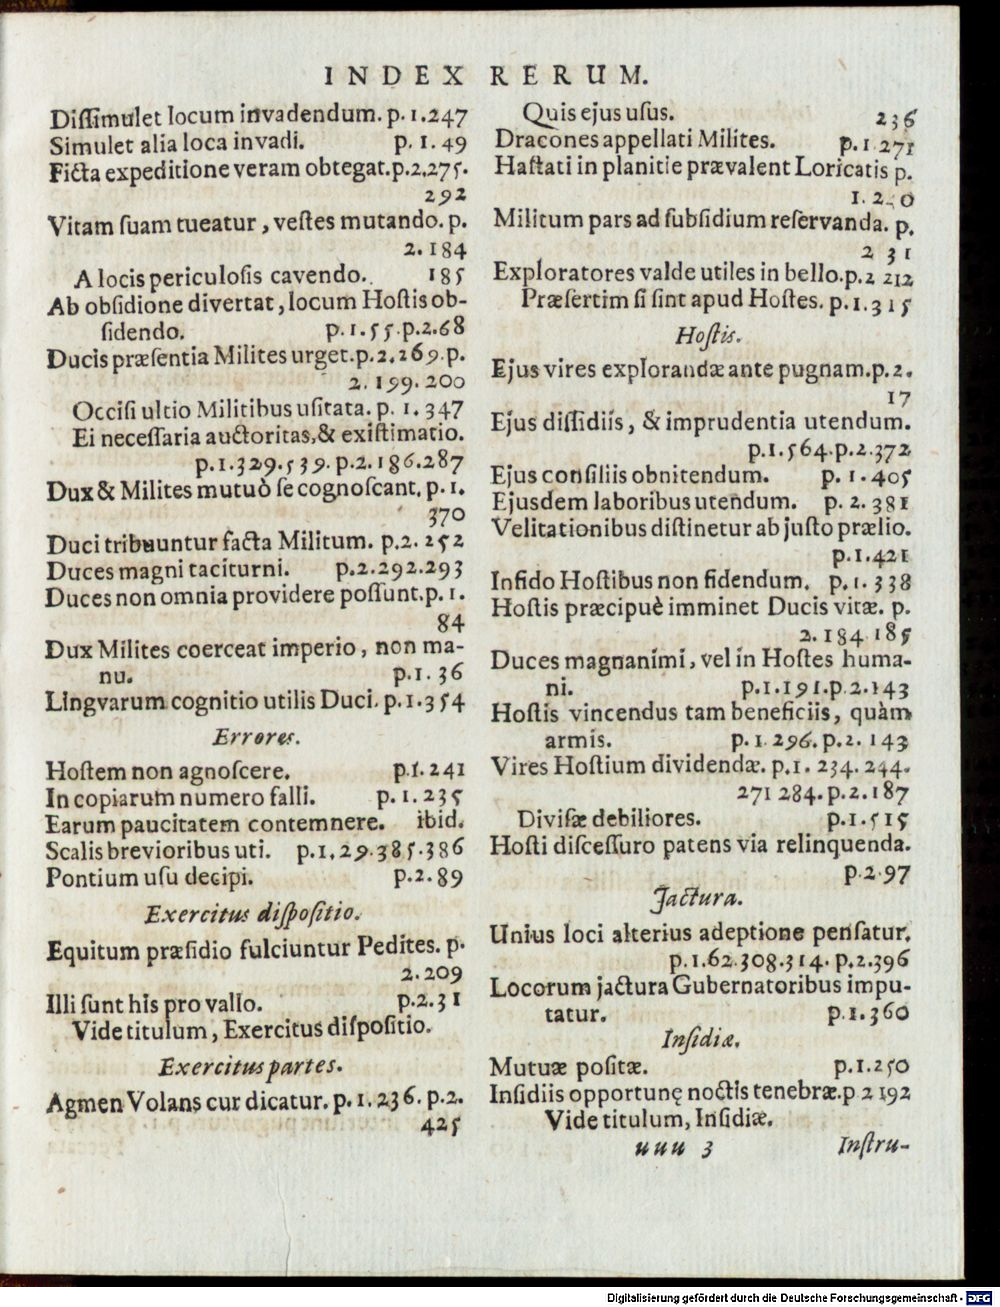 INDEX RERUM.
Diſſimulet locum invadendum. p. 1.247
Simulet alia loca invadi. p. 1. 49
Ficta expeditione veram obtegat.p.2.275.
292
Vitam ſuam tueatur, veſtes mutando. p.
2. 184
A locis periculoſis cavendo. 185
Ab obſidione divertat, locum Hoſtis ob-
ſidendo. p. 1. 55. p.2.68
Ducis præſentia Milites urget.p.2.269.p.
2. 199. 200
Occiſi ultio Militibus uſitata. p. 1. 347
Ei neceſſaria auctoritas,& exiſtimatio.
p.1.329.539. p.2.186.287
Dux & Milites mutuò ſe cognoſcant. p. 1.
370
Duci tribuuntur facta Militum. p.2. 252
Duces magni taciturni. p.2.292.293
Duces non omnia providere poſſunt.p. 1.
84
Dux Milites coerceat imperio, non ma-
nu. p.1. 36
Lingvarum cognitio utilis Duci. p.1.354
Errores.
Hoſtem non agnoſcere. p.1.241
In copiarum numero falli. p. 1.235
Earum paucitatem contemnere. ibid.
Scalis brevioribus uti. p.1.29.385.386
Pontium uſu decipi. p.2.89
Exercitus diſpoſitio.
Equitum præſidio fulciuntur Pedites. p.
2.209
Illi ſunt his pro vallo. p.2.31
Vide titulum, Exercitus diſpoſitio.
Exercitus partes.
Agmen Volans cur dicatur. p. 1. 236. p.2.
425
Quis ejus uſus. 236
Dracones appellati Milites. p.1 271
Haſtati in planitie prævalent Loricatis p.
1. 240
Militum pars ad ſubſidium reſervanda. p.
2 31
Exploratores valde utiles in bello.p.2 212
Præſertim ſi ſint apud Hoſtes. p.1.315
Hoſtis.
Ejus vires explorandæ ante pugnam.p.2.
17
Ejus diſſidiis, & imprudentia utendum.
p.1.564.p.2.372
Ejus conſiliis obnitendum. p. 1.405
Ejusdem laboribus utendum. p. 2. 381
Velitationibus diſtinetur ab juſto prælio.
p.1.421
Infido Hoſtibus non fidendum. p.1.338
Hoſtis præcipuè imminet Ducis vitæ. p.
2. 184 185
Duces magnanimi, vel in Hoſtes huma-
ni. p.1.191.p.2.143
Hoſtis vincendus tam beneficiis, quàm
armis. p. 1. 296. p.2. 143
Vires Hoſtium dividendæ. p.1. 234. 244.
271 284. p.2.187
Diviſæ debiliores. p.1.515
Hoſti diſceſſuro patens via relinquenda.
p.2.97
Jactura.
Unius loci alterius adeptione penſatur.
p.1.62.308.314. p.2.396
Locorum jactura Gubernatoribus impu-
tatur. p.1.360
Inſidiæ.
Mutuæ poſitæ. p.1.250
Inſidiis opportunę noctis tenebræ.p 2 192
Vide titulum, Inſidiæ.
uuu 3 Inſtru-
Digitalisierung gefördert durch die Deutsche Forschungsgemeinschaft - DFG